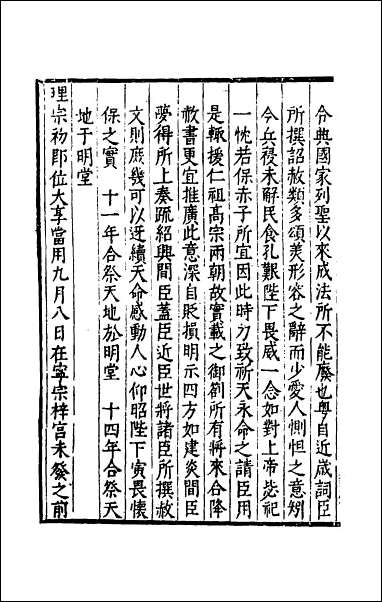 令典國家列聖以來成法所不能廢也粤自近嵗詞臣
所撰詔赦類多頌美形容之辭而少愛人惻怛之意矧
今兵祲未解民食孔艱陛下畏威一念如對上帝毖祀
一忱若保赤子所宜因此時力致祈天永命之請臣用
是輙援仁祖高宗兩朝故實載之御劄所有將來合降
赦書更宜推廣此意深自貶損明示四方如建炎間臣
夢得所上奏疏紹興間臣蓋臣近臣世將諸臣所撰赦
文則庻幾可以迓續天命感動人心仰昭陛下寅畏懐
保之實　十一年合祭天地於明堂　十四年合祭天
地于明堂
理宗初郎位大享當用九月八日在寧宗梓宫未發之前